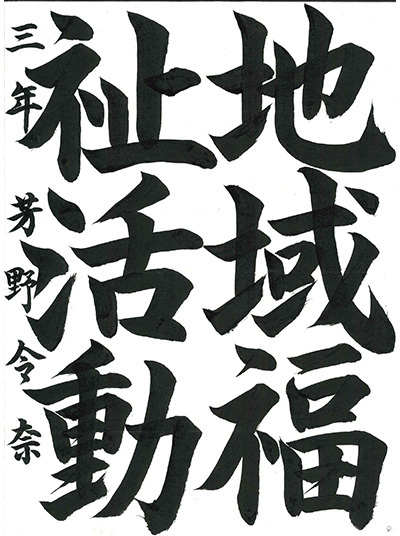 地域福
祉活動
三年 芳野令奈